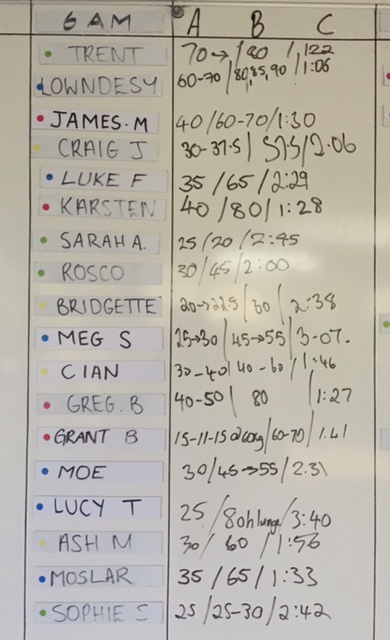 6AM A B C
TRENT 70→ / 80 / 1:22
LOWNDESY 60-70 / 80,85,90 / 1:06
JAMES.M 40 / 60-70 / 1:30
CRAIG J 30-37.5 | 57.5 / 2:06
LUKE F 35 / 65 / 2:29
KARSTEN 40 / 80 / 1:28
SARAH A. 25 / 20 / 2:45
ROSCO 30 / 45 / 2:00
BRIDGETTE 20→22.5 / 30 / 2:38
MEG S 25→30 | 45→55 | 3-07.
CIAN 30-40 | 40-60 / 1:46
GREG.B 40-50 | 80 | 1:27
GRANT B 15-11-15 @60kg / 60-70 / 1.41
MOE 30 / 45→55 / 2.31
LUCY T 25 / 8 oh lunge / 3:40
ASH M 30 / 60 / 1:56
MOSLAR 35 / 65 / 1:33
SOPHIE S 25 / 25-30 / 2:42